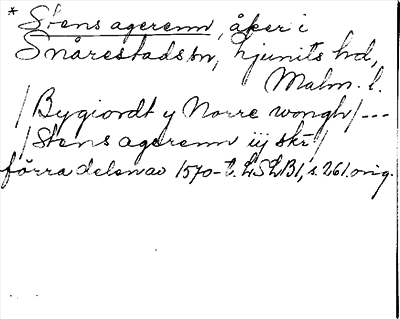 * Stens agerenn, åker i
Snårestads sn, Ljunits hd,
Malm. l.
/Bygiordt y Norre wongh/---
/Stens agerenn iij skr/
förra delen av 1570-t. LSLB1, s. 261. orig.